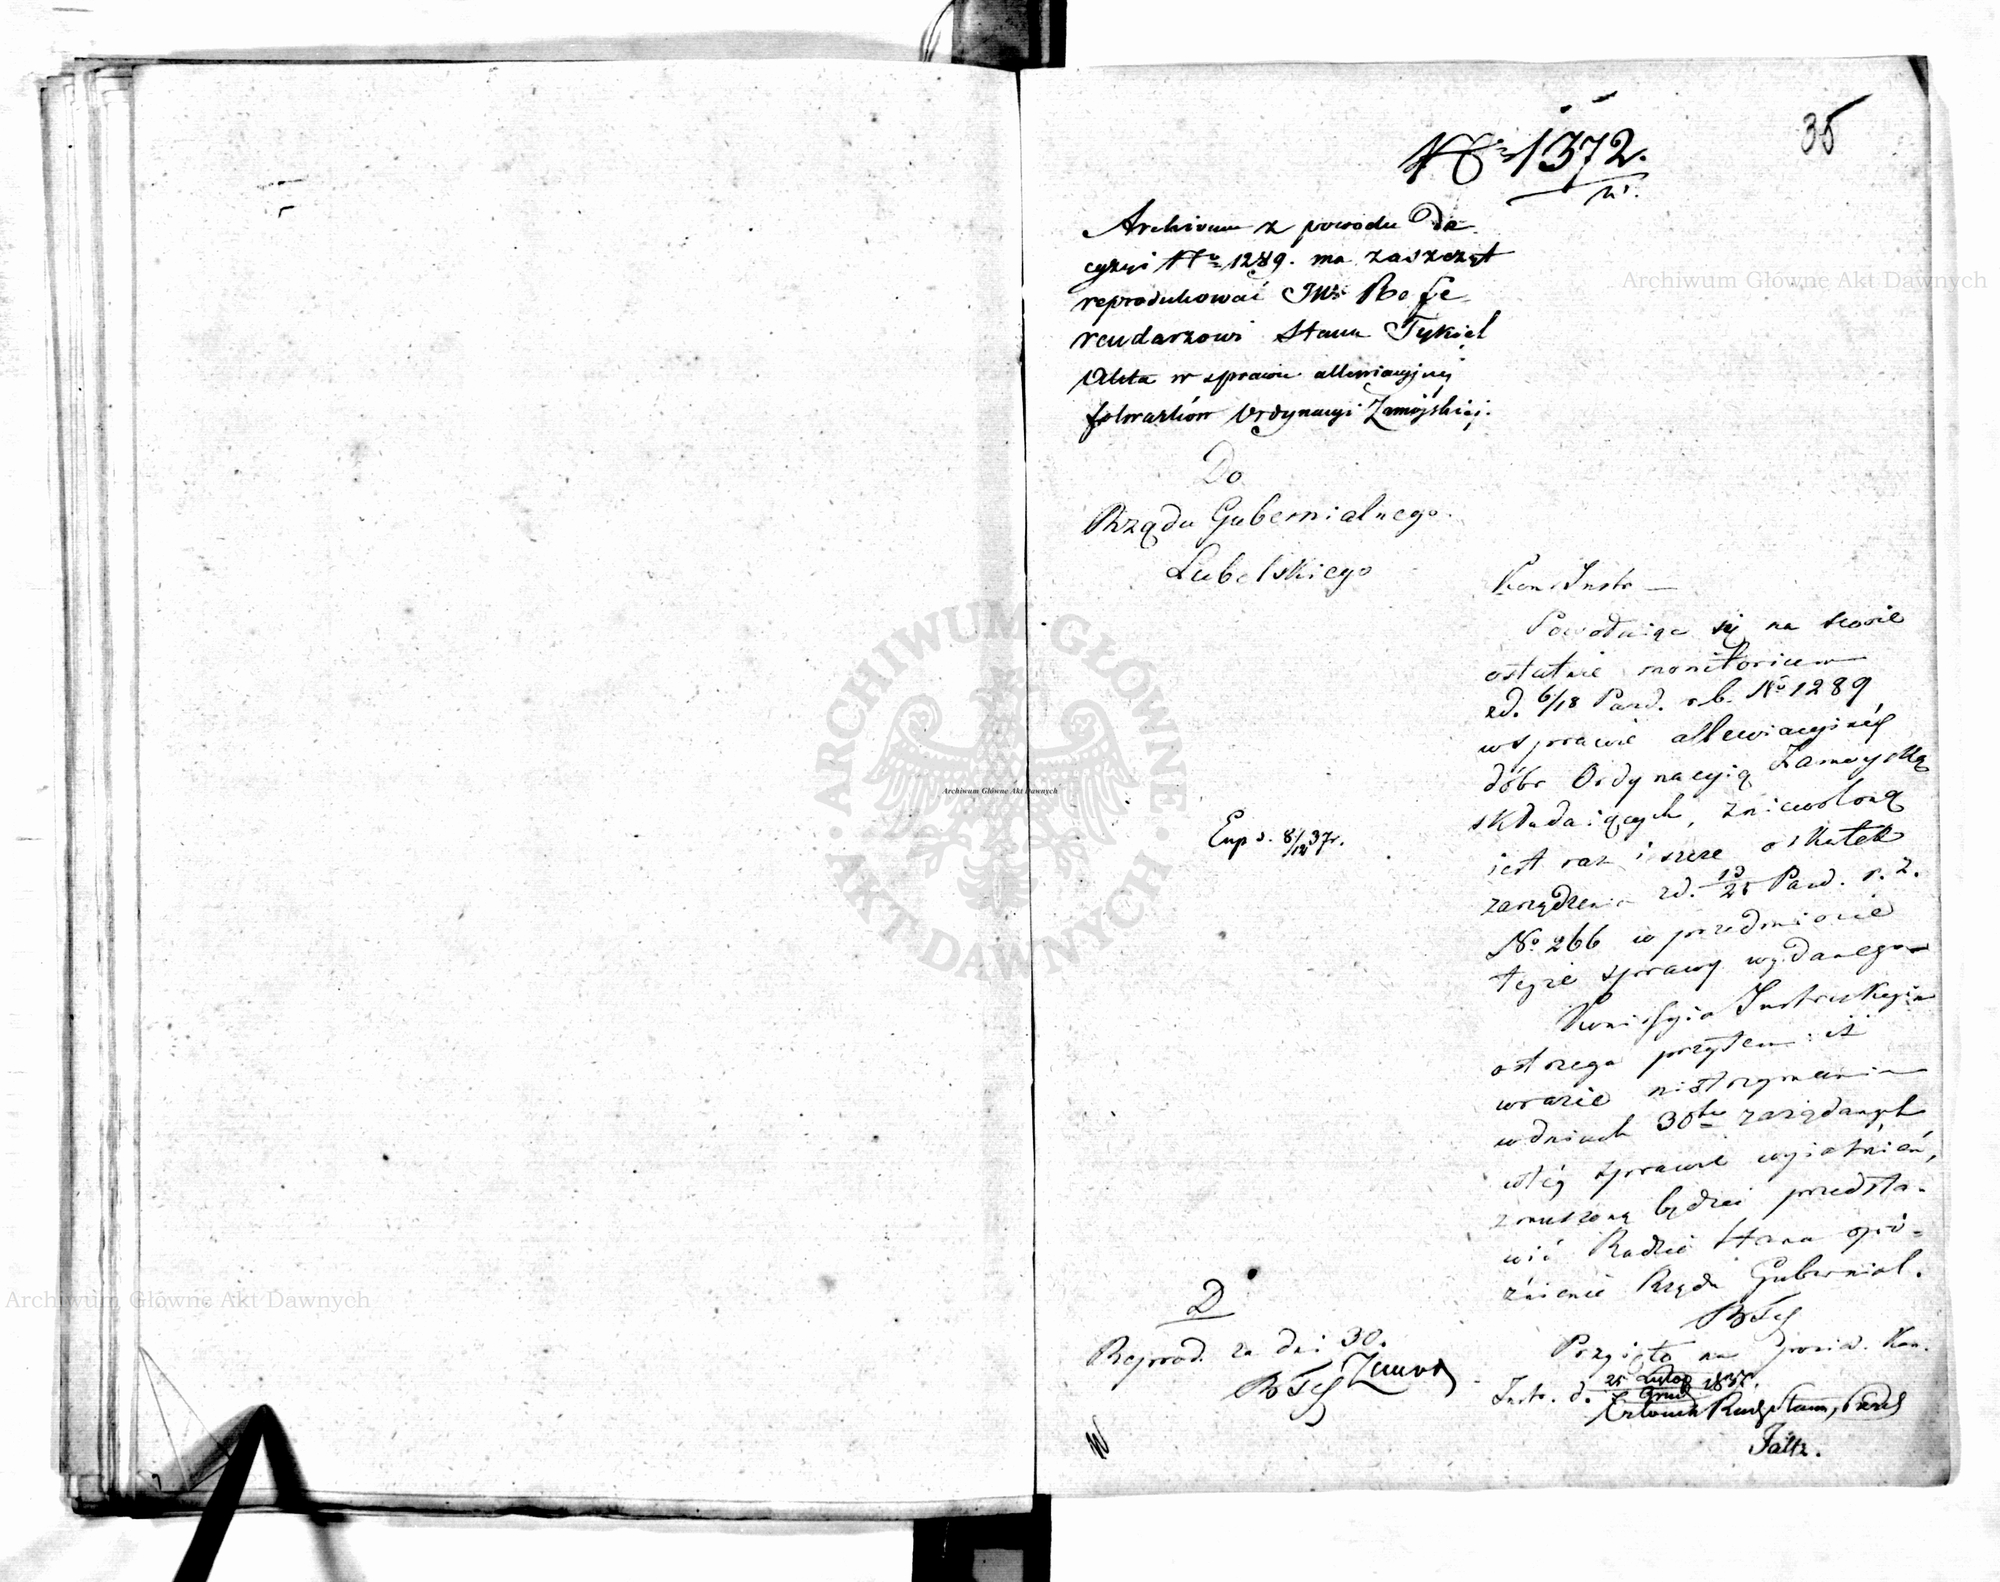 35
No 1372.
Archiwum z powodu De
cyzyi No 1289. ma zaszczyt
reprodukować JWu Refe
rendarzowi Stanu Tykiel
Akta w sprawie allewiacyjnej
folwarków Ordynacyi Zamojskiej.
Do
Rządu Gubernialnego
Lubelskiego
Kom. Instr —
Powołuiąc się na swoie
ostatnie monitorium
zd. 6/18 Pazd. r.b. No 1289
w sprawie allewiacyinéy
dóbr Ordynacyią Zamoyską
składaiących, zniewoloną
iest raz ieszcze o skutek
zarządzenia zd. 13/25 Pazd. r. z.
No 266 w przedmiocie
teyże sprawy wydanego
Kommissyia Instrukcyina
ostrzega przytem iż
w razie nieotrzymania
w dniach 30tu zażądanych
w téy sprawie wyiaśnień,
zmuszoną będzie przedsta-
wić Radzie Stanu opó-
źnienie Rządu Gubernial.
Exp d. 8/12 37r.
D
Reprod. za dni 30.
Przyięto na posied. Kom.
Instr. d. 25 Listop / 7 Grud 1837.
Członek Rady Stanu, Prezes
Faltz.
Archiwum Główne Akt Dawnych
Archiwum Główne Akt Dawnych
Archiwum Główne Akt Dawnych
ARCHIWUM GŁÓWNE
AKT DAWNYCH